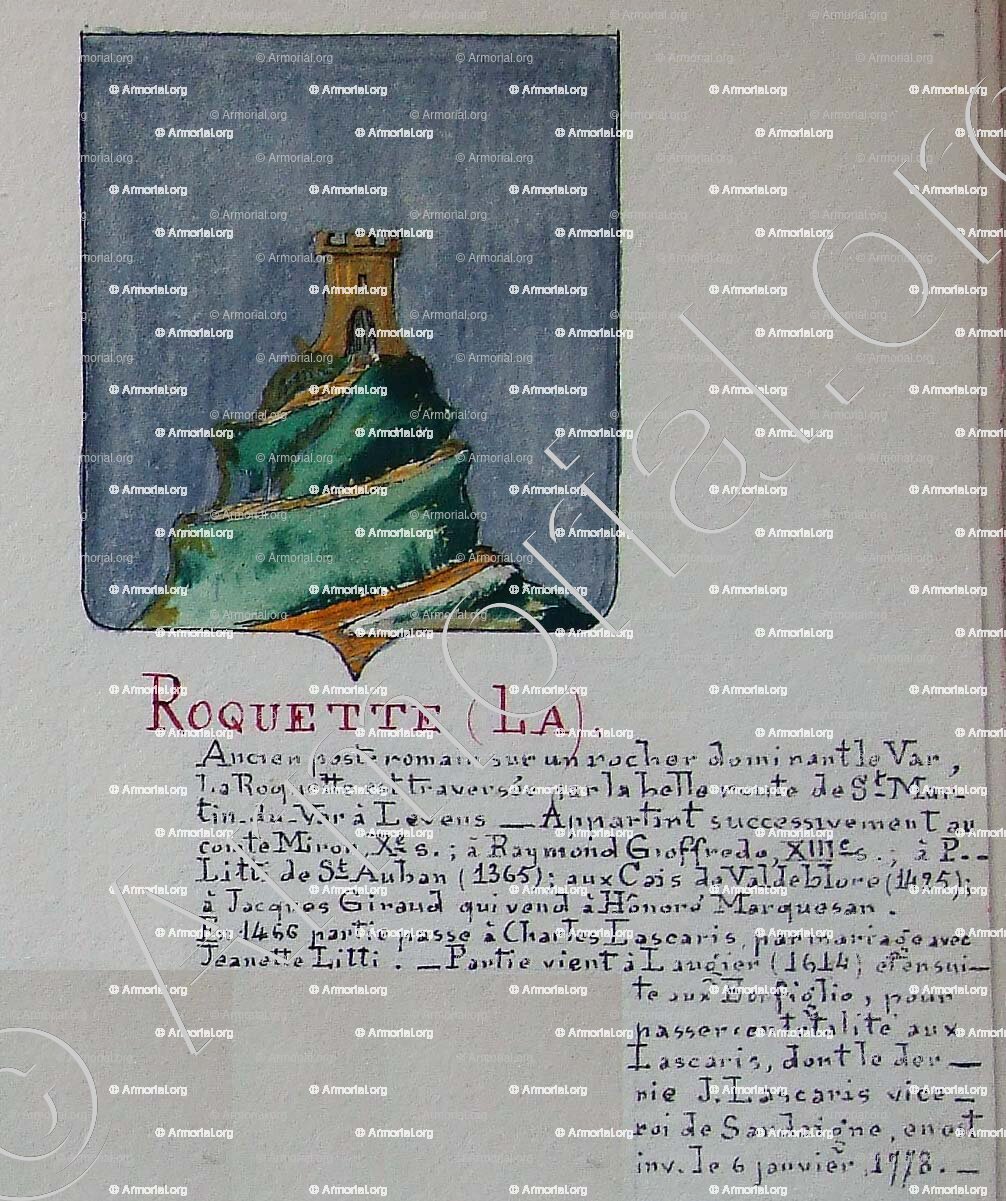 ROQUETTE (LA).
Ancien poste romain sur un rocher dominant le Var,
La Roquette est traversée par la belle route de St Mar-
tin-du-Var à Levens — Appartint successivement au
comte Miron, Xe s.; à Raymond Gioffredo, XIIIe s.; à P..
Litti de St Auban (1365); aux Cais de Valdeblore (1425);
à Jacques Giraud qui vend à Honoré Marquesan.
En 1466 partie passe à Charles Lascaris, par mariage avec
Jeanette Litti! — Partie vient à Laugier (1614) et ensui—
te aux Borfiglio, pour
passer en totalité aux
Lascaris, dont le der—
nie J. Lascaris vice—
roi de Sardaigne, en est
inv. le 6 janvier 1778. —
© Armorial.org